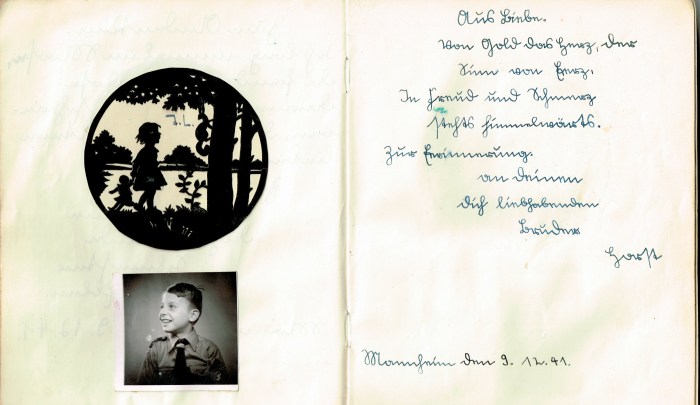 J.L.
Aus Liebe.
Von Gold das Herz, der
Sinn von Erz.
In Freud und Schmerz
stehts himmelwärts.
Zur Erinnerung.
an deinen
dich liebhabenden
Bruder
Horst
Mannheim den 9. 12. 41.